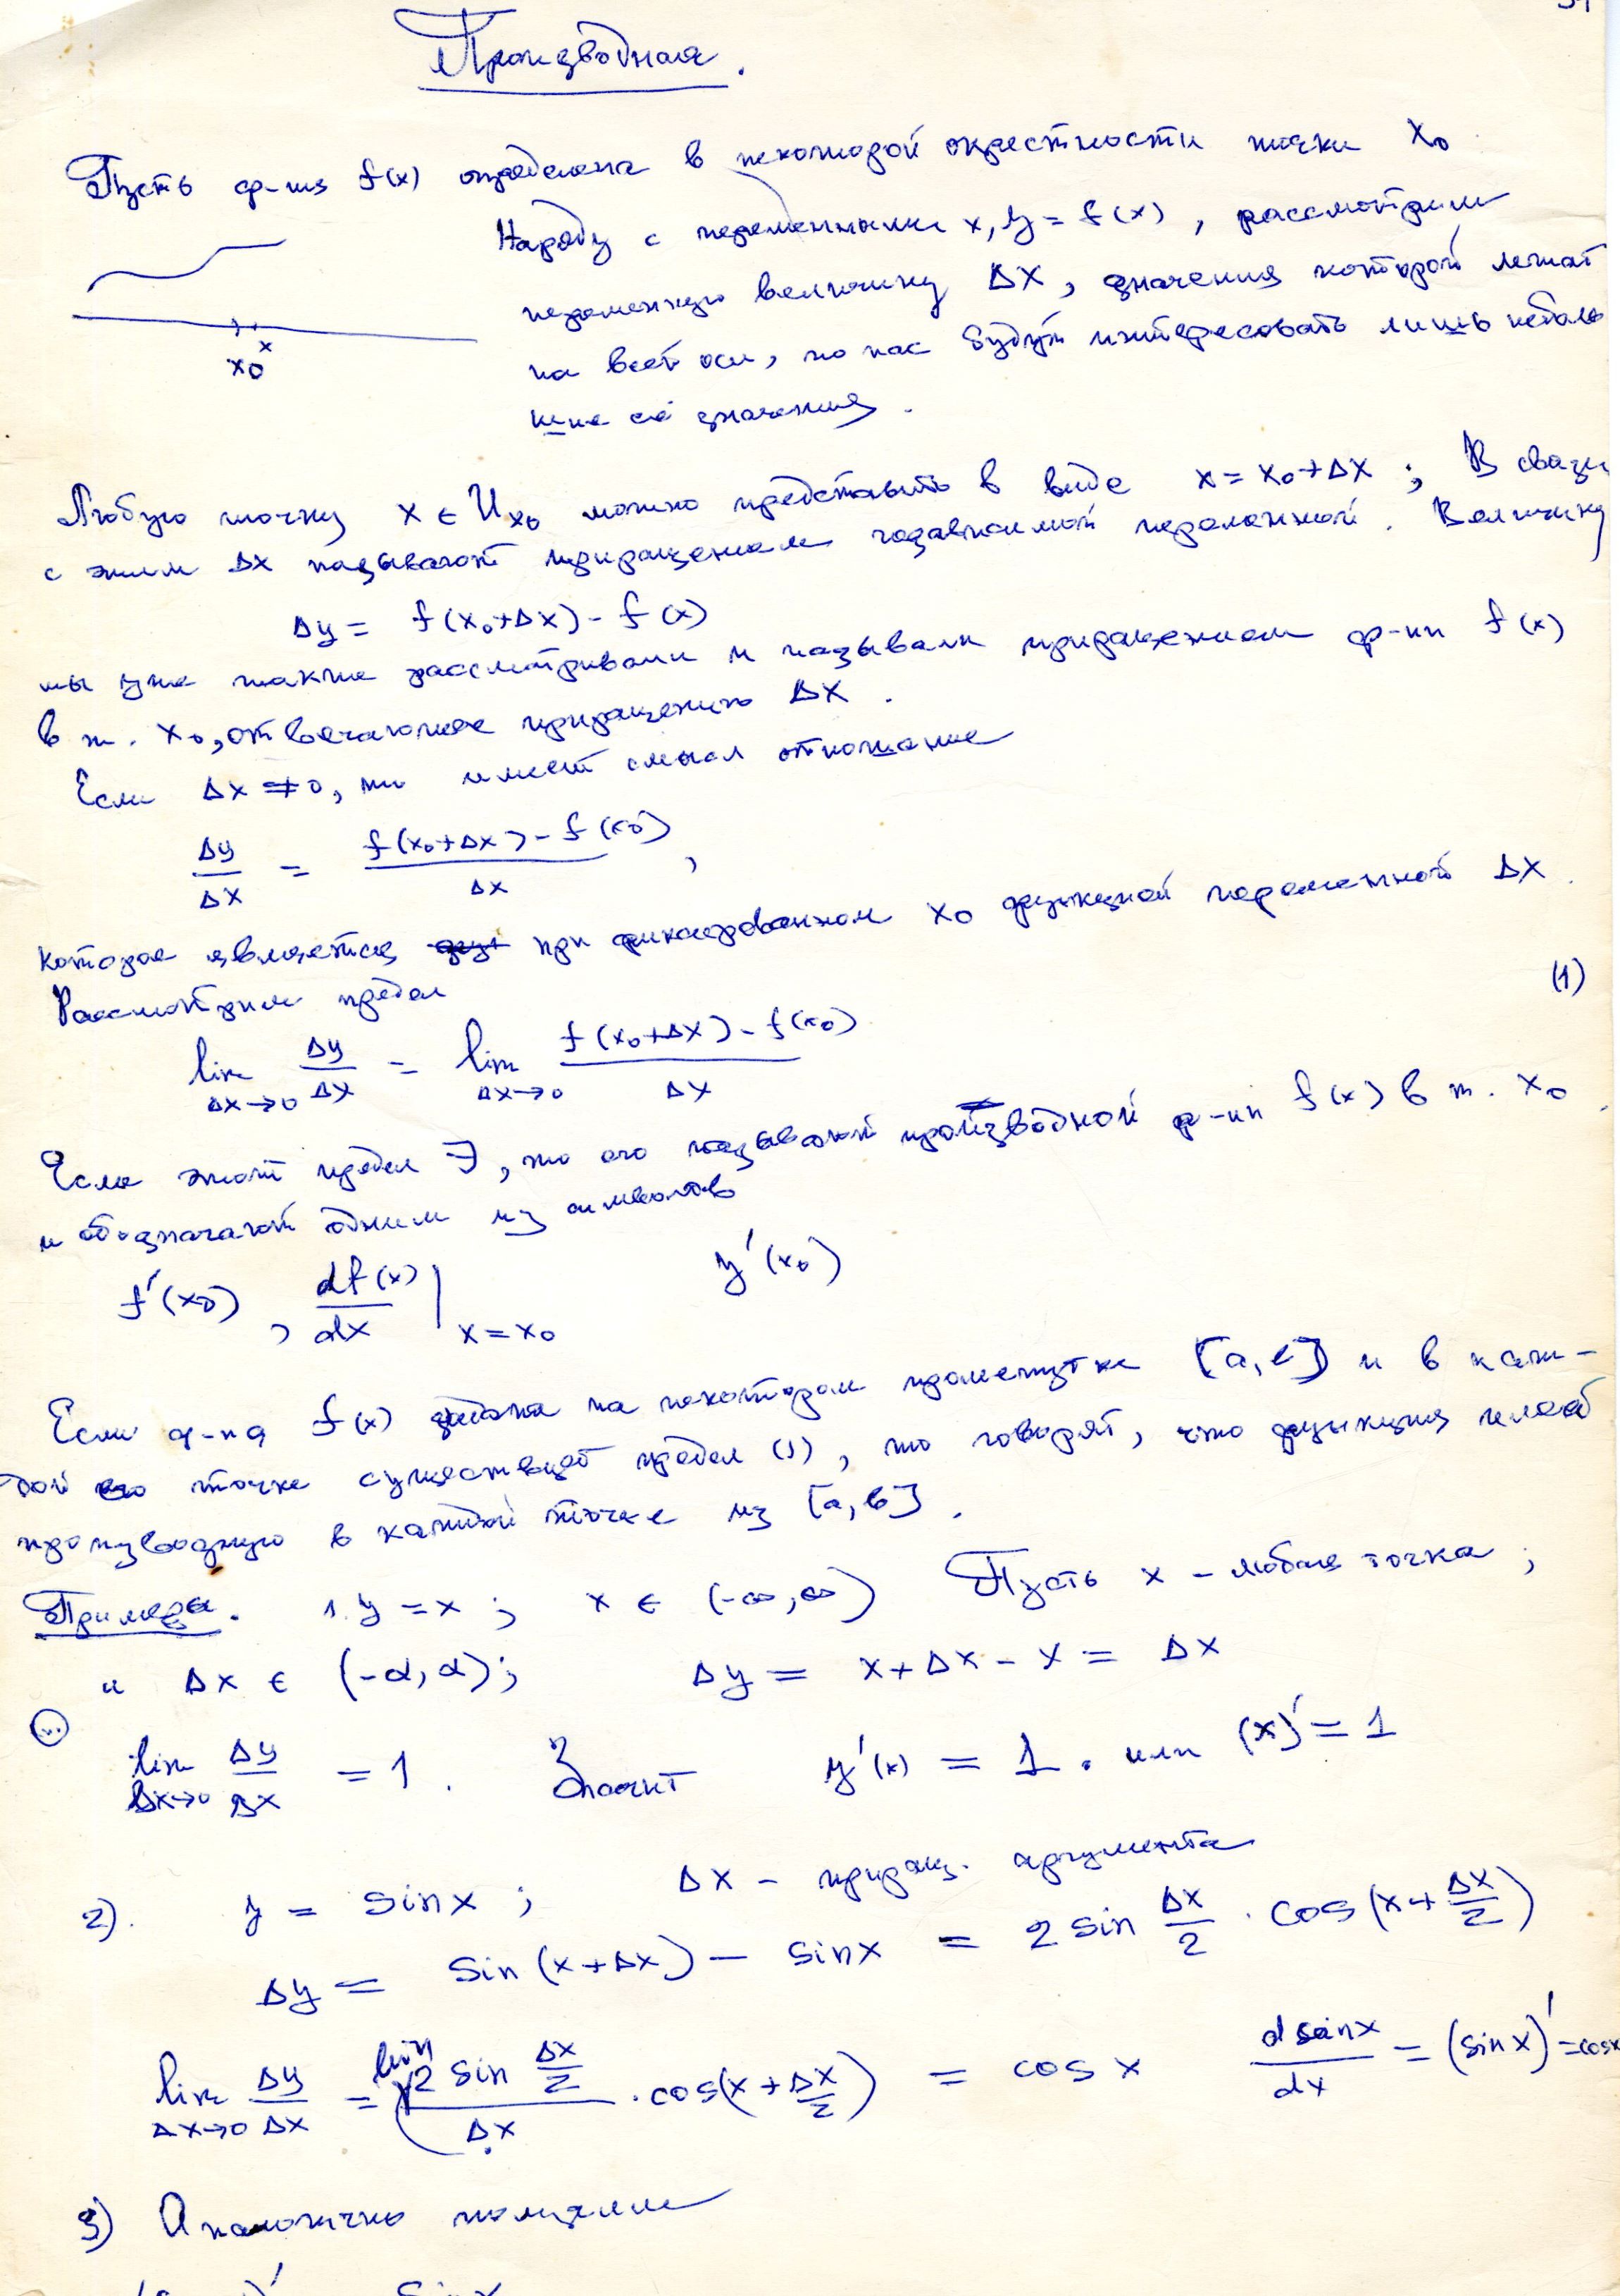 Производная.
Пусть ф-ия f(x) определена в некоторой окрестности точки x₀
Наряду с переменными x, y = f(x), рассмотрим
переменную величину Δx, значения которой лежат
на всей оси, но нас будут интересовать лишь неболь
шие её значения.
x
x₀
Любую точку x ∈ U_{x₀} можно представить в виде x = x₀+Δx; В связи
с этим Δx называют приращением независимой переменной. Величину
Δy = f(x₀+Δx) - f(x)
мы уже также рассматривали и называли приращением ф-ии f(x)
в т. x₀, отвечающее приращению Δx.
Если Δx ≠ 0, то имеет смысл отношение
Δy/Δx = (f(x₀+Δx) - f(x₀))/Δx,
которое является при фиксированном x₀ функцией переменной Δx.
Рассмотрим предел (1)
lim_{Δx→0} Δy/Δx = lim_{Δx→0} (f(x₀+Δx) - f(x₀))/Δx
Если этот предел ∃, то его называют производной ф-ии f(x) в т. x₀.
и обозначают одним из символов
f'(x₀), df(x)/dx |_{x=x₀} y'(x₀)
Если ф-ия f(x) задана на некотором промежутке [a,b] и в каж-
дой его точке существует предел (1), то говорят, что функция имеет
производную в каждой точке из [a,b].
Примеры. 1. y = x; x ∈ (-∞,∞) Пусть x - любая точка;
и Δx ∈ (-α,α); Δy = x+Δx - x = Δx
lim_{Δx→0} Δy/Δx = 1. Значит y'(x) = 1. или (x)' = 1
2). y = sin x; Δx - приращ. аргумента
Δy = sin(x+Δx) - sin x = 2 sin Δx/2 · cos(x+Δx/2)
lim_{Δx→0} Δy/Δx = lim (2 sin Δx/2)/Δx · cos(x+Δx/2)) = cos x d sin x/dx = (sin x)' = cos x
3) Аналогично получаем